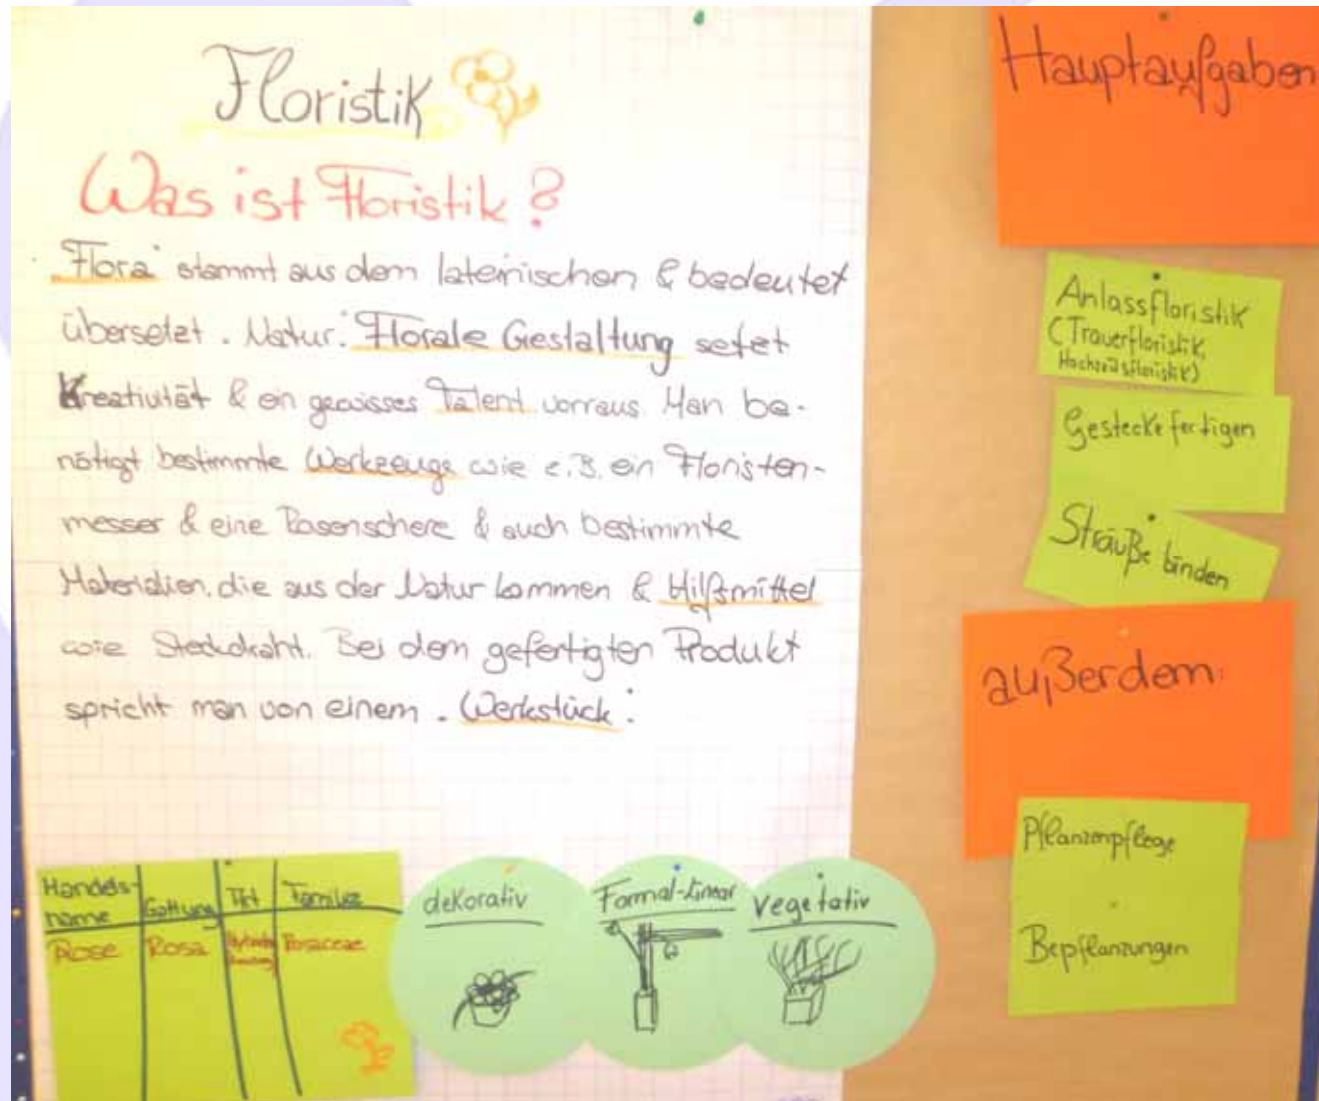 Floristik
Was ist Floristik?
"Flora" stammt aus dem lateinischen & bedeutet
übersetzt "Natur". Florale Gestaltung setzt
Kreativität & ein gewisses Talent vorraus. Man be-
nötigt bestimmte Werkzeuge wie z.B. ein Floristen-
messer & eine Rosenschere & auch bestimmte
Materialien, die aus der Natur kommen & Hilfsmittel
wie Steckdraht. Bei dem gefertigten Produkt
spricht man von einem "Werkstück".
Handels-
name Gattung Art Familie
Rose Rosa Rosaceae
dekorativ
Formal-Linear
vegetativ
Hauptaufgaben
Anlassfloristik
(Trauerfloristik,
Hochzeitsfloristik)
Gestecke fertigen
Sträuße binden
außerdem:
Pflanzenpflege
Bepflanzungen